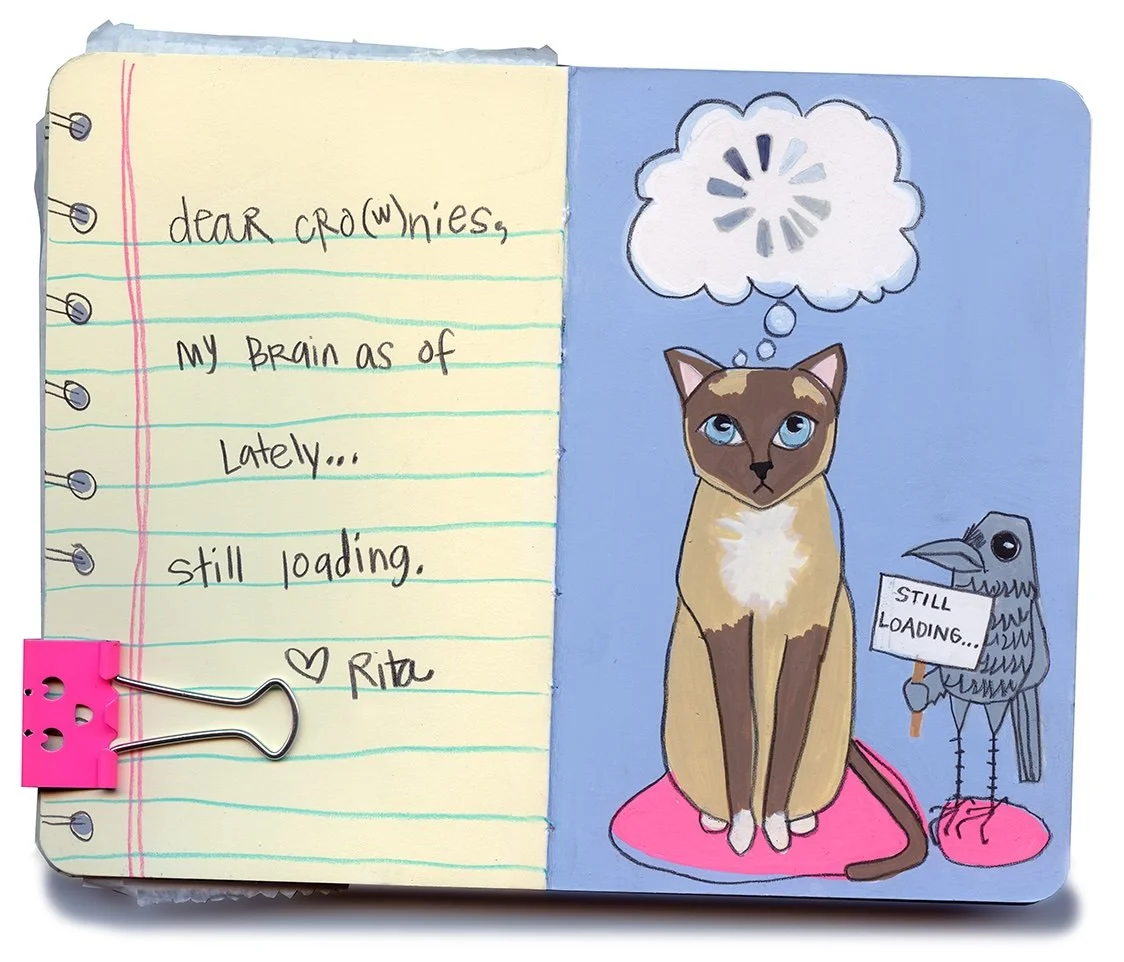 dear cro(w)nies,
my brain as of
lately...
still loading.
♡ Rita
STILL
LOADING...